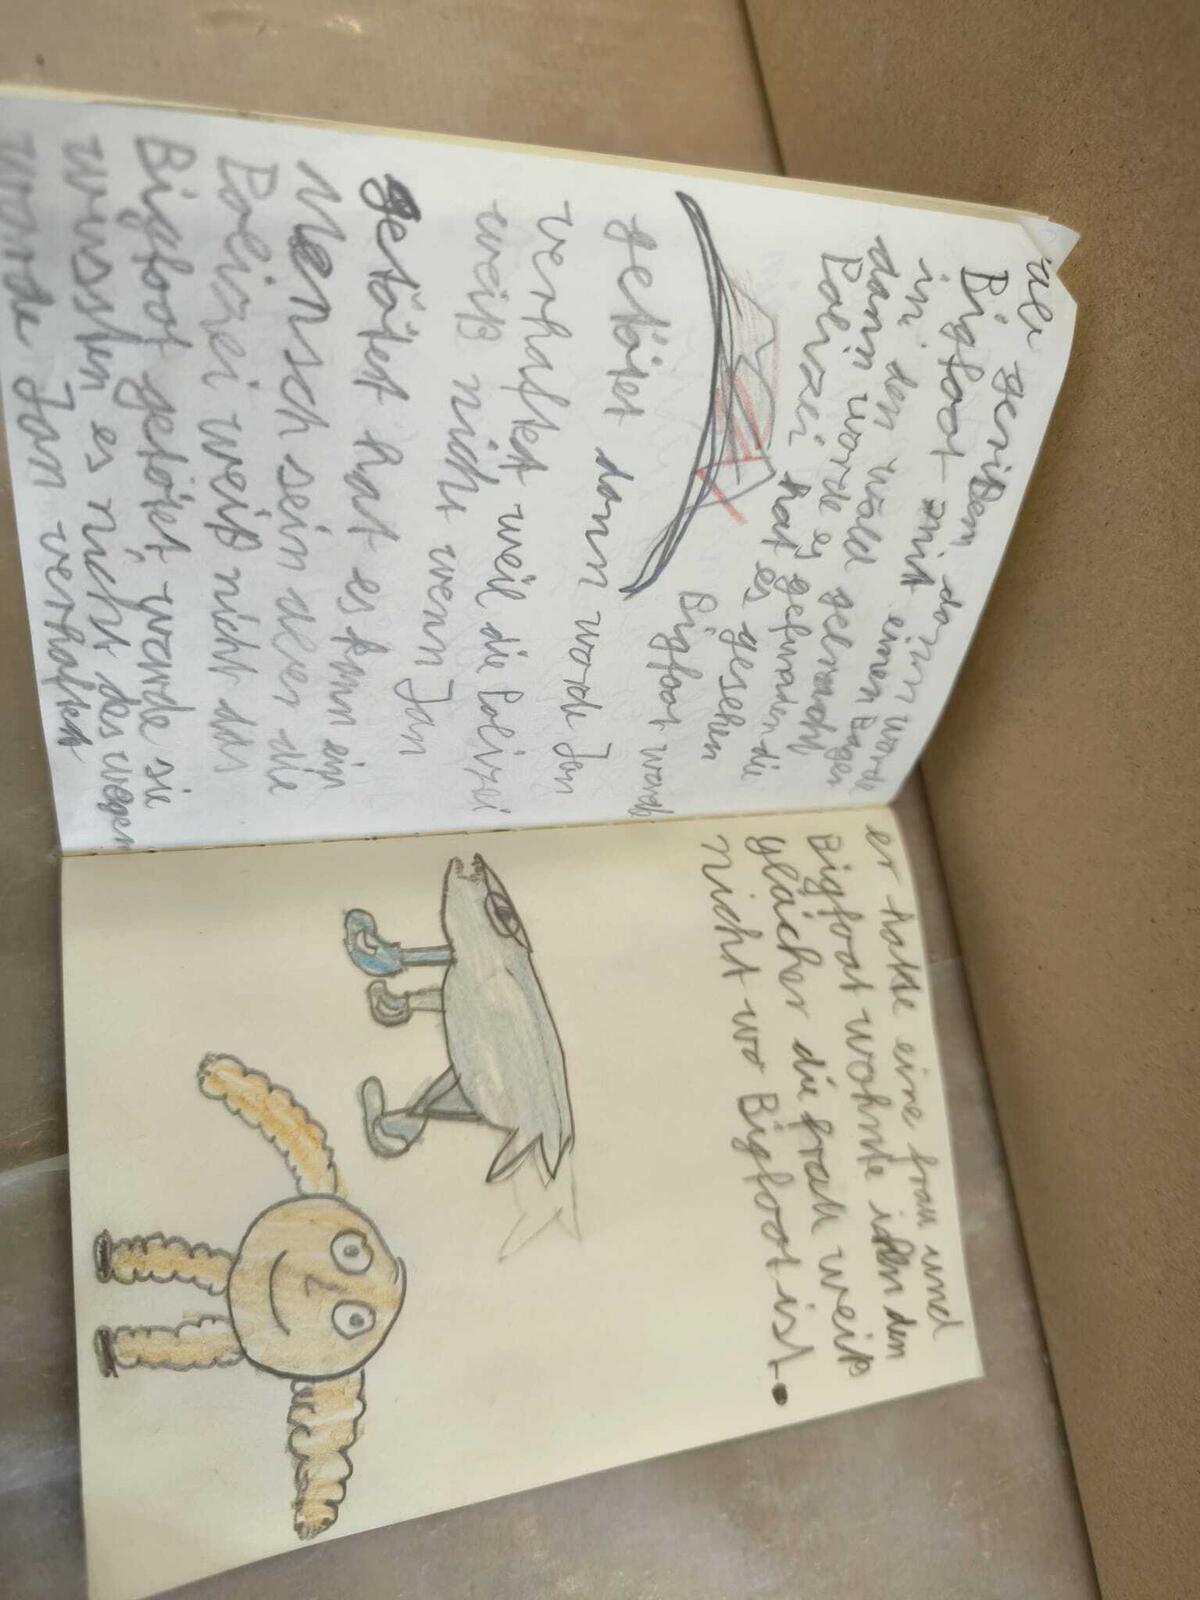 gerißen dann wurde
Bigfoot mit einen Bager
in den wald gebracht
dann wurde es gefunden die
Polizei hat es gesehen
Bigfoot wurde
getötet dann wurde Jan
verhaftet weil die Polizei
weiß nicht wenn Jan
getötet hat es kann ein
Mensch sein aber die
Polizei weiß nicht das
Bigfoot getötet wurde sie
wussten es nicht deswegen
wurde Jan verhaftet
er hatte eine frau und
Bigfoot wohnte in den
die frau weiß
nicht wo Bigfoot ist.